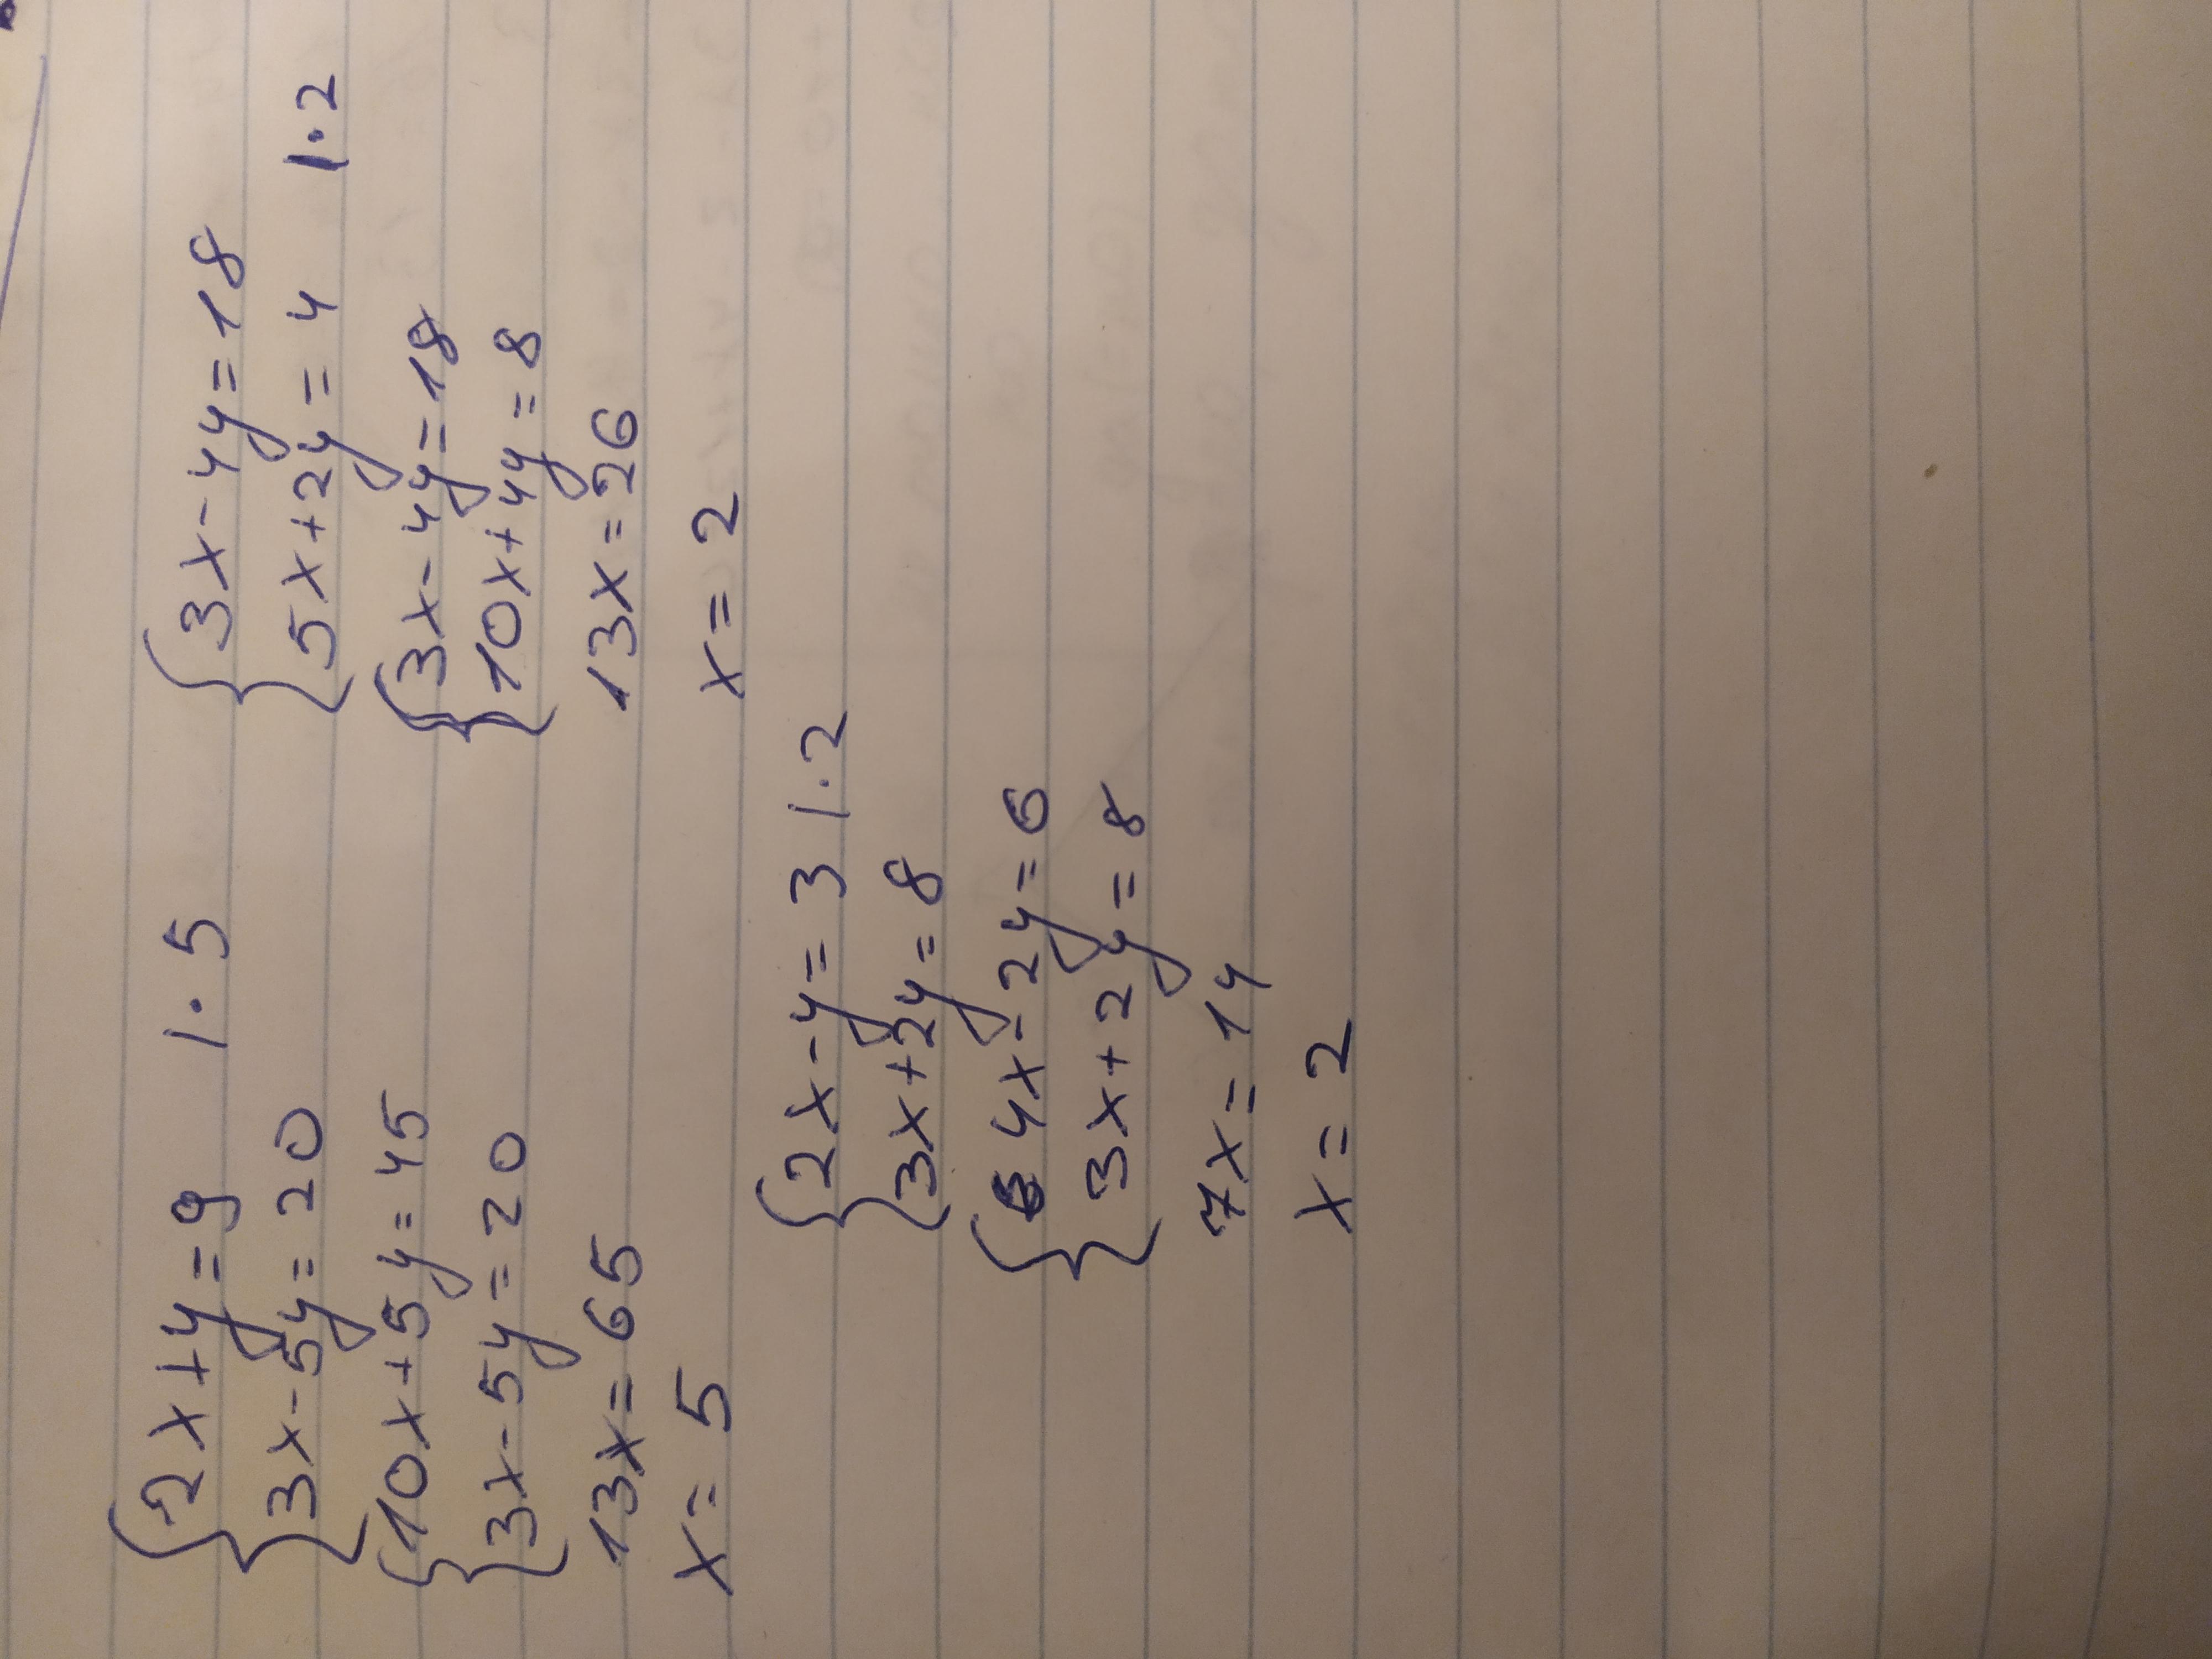 {2x+y=9 |·5
{3x-5y=20
{10x+5y=45
{3x-5y=20
13x=65
x=5
{3x-4y=18
{5x+2y=4 |·2
{3x-4y=18
{10x+4y=8
13x=26
x=2
{2x-y=3 |·2
{3x+2y=8
{4x-2y=6
{3x+2y=8
7x=14
x=2